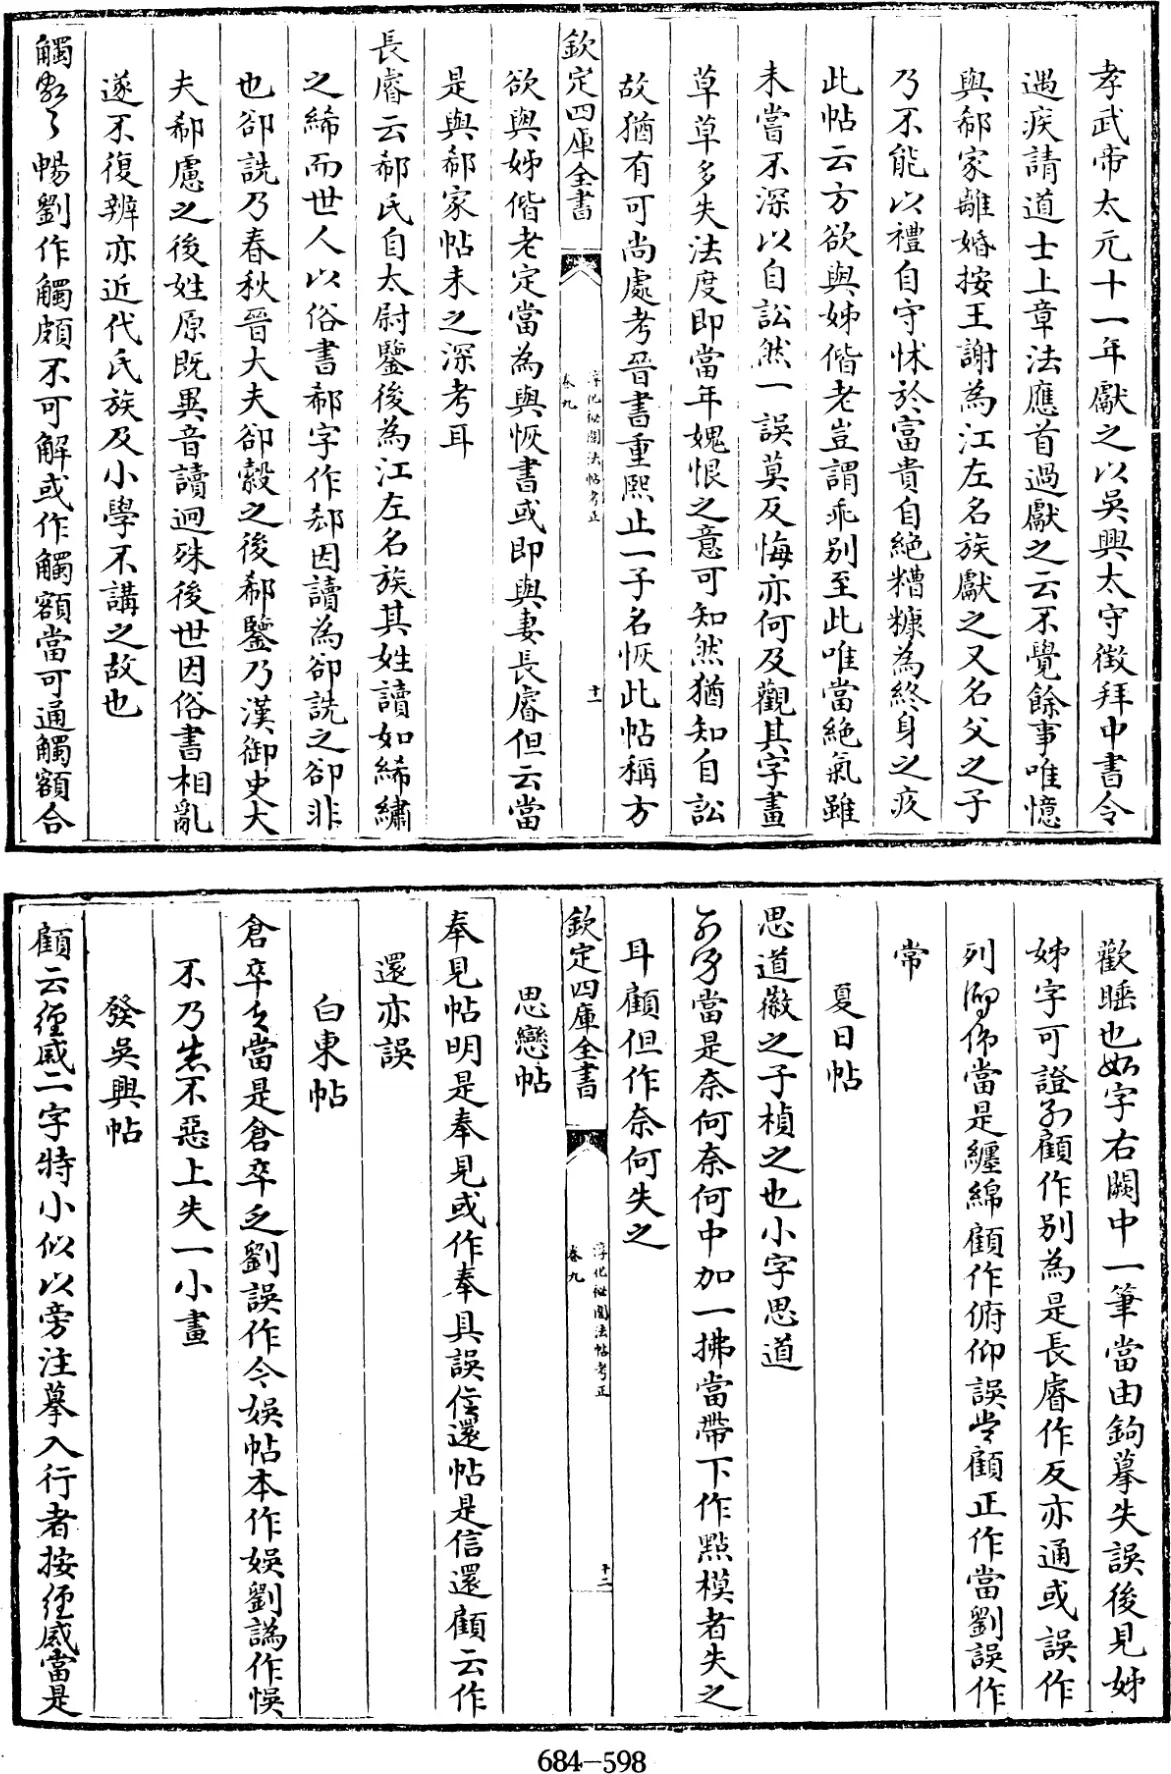 孝武帝太元十一年獻之以吳興太守徴拜中書令
遇疾請道士上章法應首過獻之云不覺餘事唯憶
與郗家離婚按王謝為江左名族獻之又名父之子
乃不能以禮自守怵於富貴自絶糟糠為終身之疚
此帖云方欲與姊偕老豈謂乖別至此唯當絶氣雖
未嘗不深以自訟然一誤莫反悔亦何及觀其字畫
草草多失法度即當年媿恨之意可知然猶知自訟
故猶有可尚處考晉書重熙止一子名恢此帖稱方
欽定四庫全書
淳化祕閣法帖考正
卷九
十一
欲與姊偕老定當為與恢書或即與妻長睿但云當
是與郗家帖未之深考耳
長睿云郗氏自太尉鑒後為江左名族其姓讀如絺繡
之絺而世人以俗書郗字作郄因讀為卻詵之卻非
也卻詵乃春秋晉大夫卻縠之後郗鑒乃漢御史大
夫郗慮之後姓原既異音讀迥殊後世因俗書相亂
遂不復辨亦近代氏族及小學不講之故也
觸暢劉作觸頗不可解或作觸額當可通觸額合
歡睡也字右闕中一筆當由鉤摹失誤後見姊
姊字可證顧作別為是長睿作反亦通或誤作
列當是纏綿顧作俯仰誤顧正作當劉誤作
常
夏日帖
思道徽之子楨之也小字思道
當是奈何奈何中加一拂當帶下作點模者失之
耳顧但作奈何失之
欽定四庫全書
淳化祕閣法帖考正
卷九
十二
思戀帖
奉見帖明是奉見或作奉具誤信還帖是信還顧云作
還亦誤
白東帖
倉卒當是倉卒乏劉誤作令娱帖本作娱劉譌作悮
不乃不惡上失一小畫
發吳興帖
顧云二字特小似以旁注摹入行者按當是
684-598